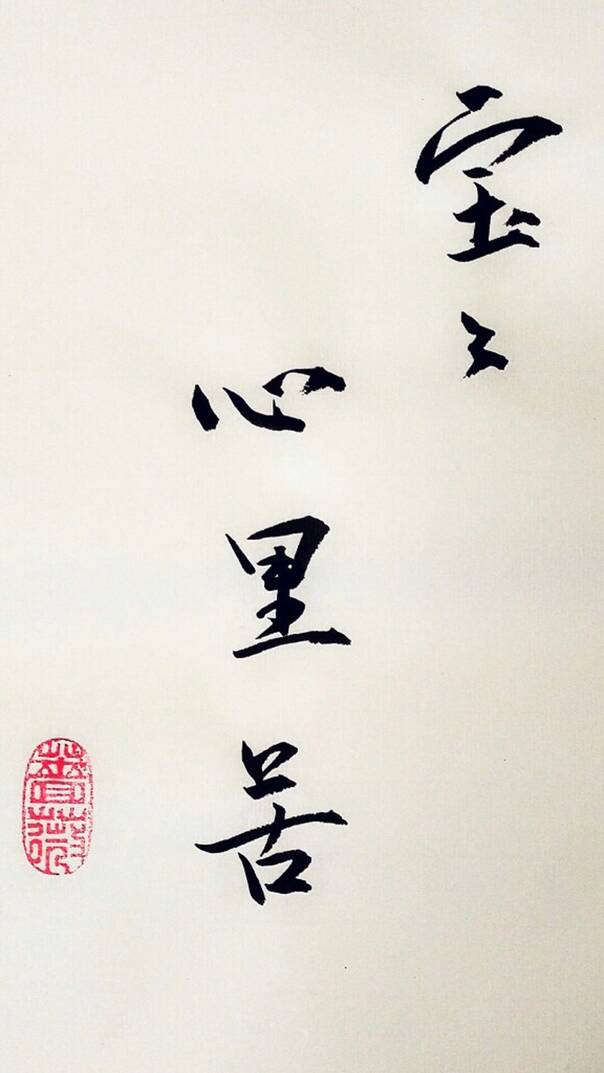 宝々
心里苦